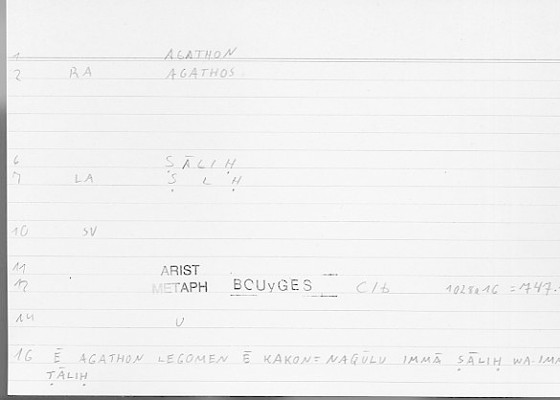 1 AGATHON
2 RA AGATHOS
6 ṢĀLIḤ
7 LA Ṣ L Ḥ
10 SV
11 ARIST
12 METAPH BOUYGES C/b 1028a16 = 747.
14 U
16 Ē AGATHON LEGOMEN Ē KAKON = NAQŪLU IMMĀ ṢĀLIḤ WA-IMM
ṬĀLIḤ